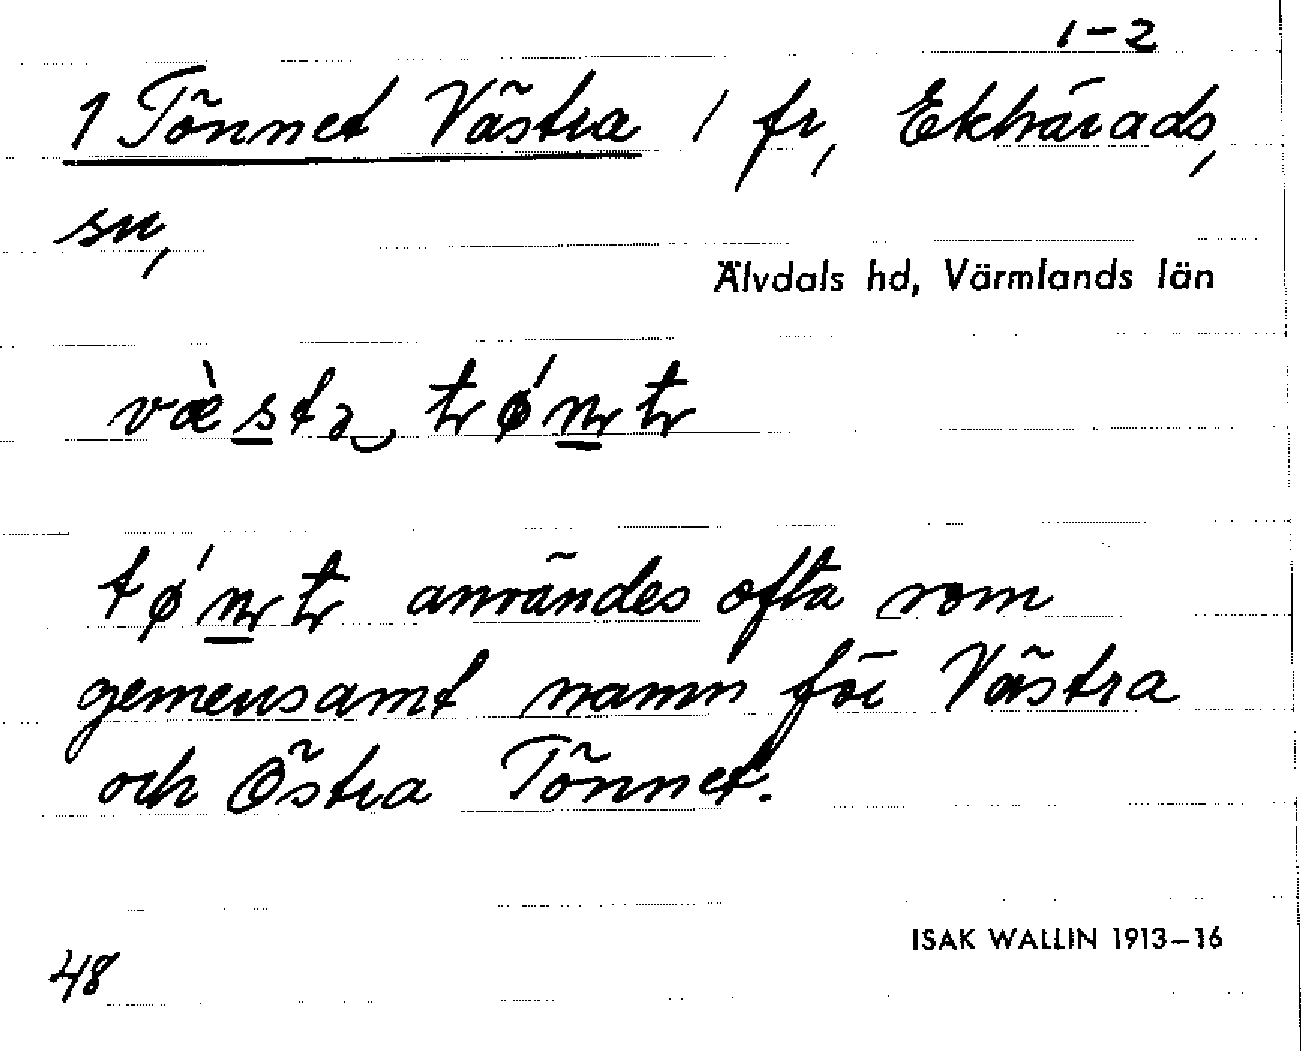 1-2
1 Tönnet Västra / fr, Ekhärads,
sn,
Älvdals hd, Värmlands län
tø´nt användes ofta som
gemensamt namn för Västra
och Östra Tönnet.
ISAK WALLIN 1913-16
48